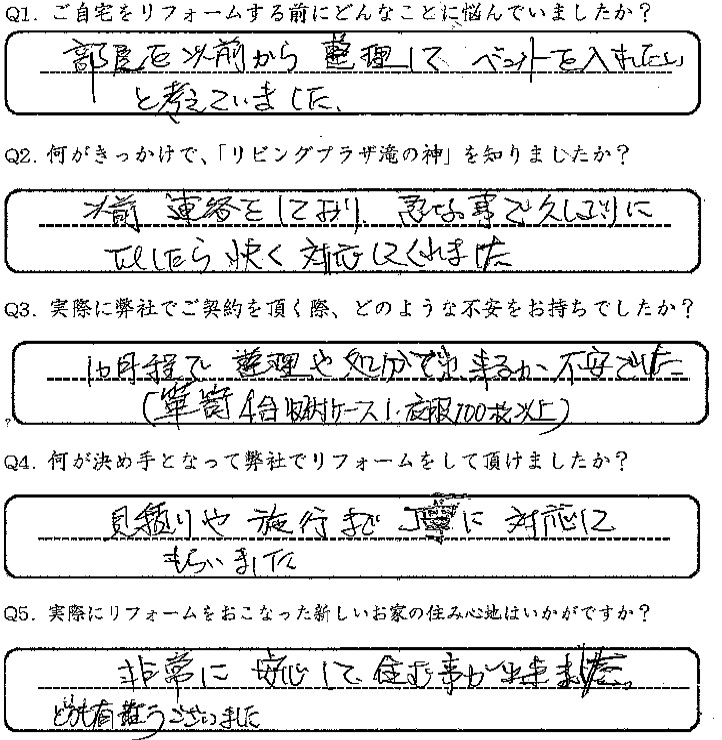 Q1. ご自宅をリフォームする前にどんなことに悩んでいましたか?
部屋を以前から整理して ベットを入れたい
と考えていました、
Q2. 何がきっかけで、「リビングプラザ滝の神」を知りましたか?
以前 連絡をしており、急な事で久しぶりに
TELしたら 快く 対応してくれました
Q3. 実際に弊社でご契約を頂く際、どのような不安をお持ちでしたか?
1ヵ月程で 整理や処分が出来るか 不安でした
(箪笥 4台 収納ケース1・衣服100枚以上)
Q4. 何が決め手となって弊社でリフォームをして頂けましたか?
見積りや 施行まで 丁重に 対応して
もらいました
Q5. 実際にリフォームをおこなった新しいお家の住み心地はいかがですか?
非常に 安心して 住む事が出来ました。
どうも有難うございました